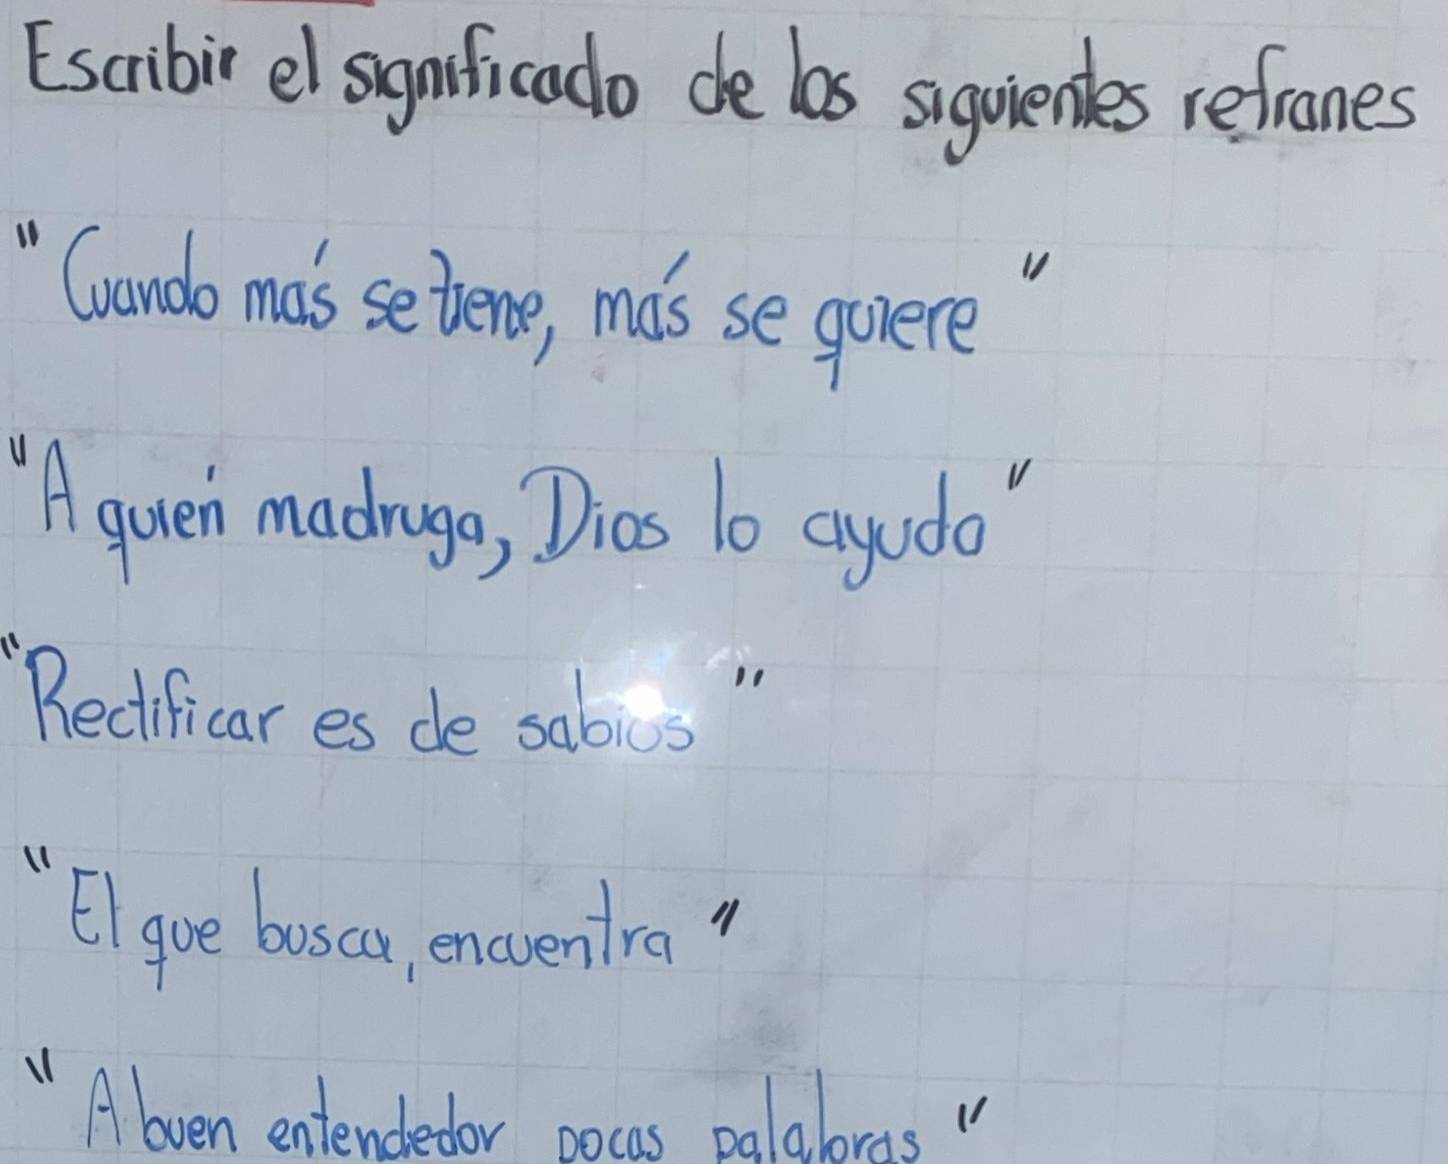 Escribir el significado de los siguientes refranes
"Cuando más se tiene, más se quiere"
"A quién madruga, Dios lo ayuda"
"Rectificar es de sabios"
"El que busca, encuentra"
"A buen entendedor pocas palabras"